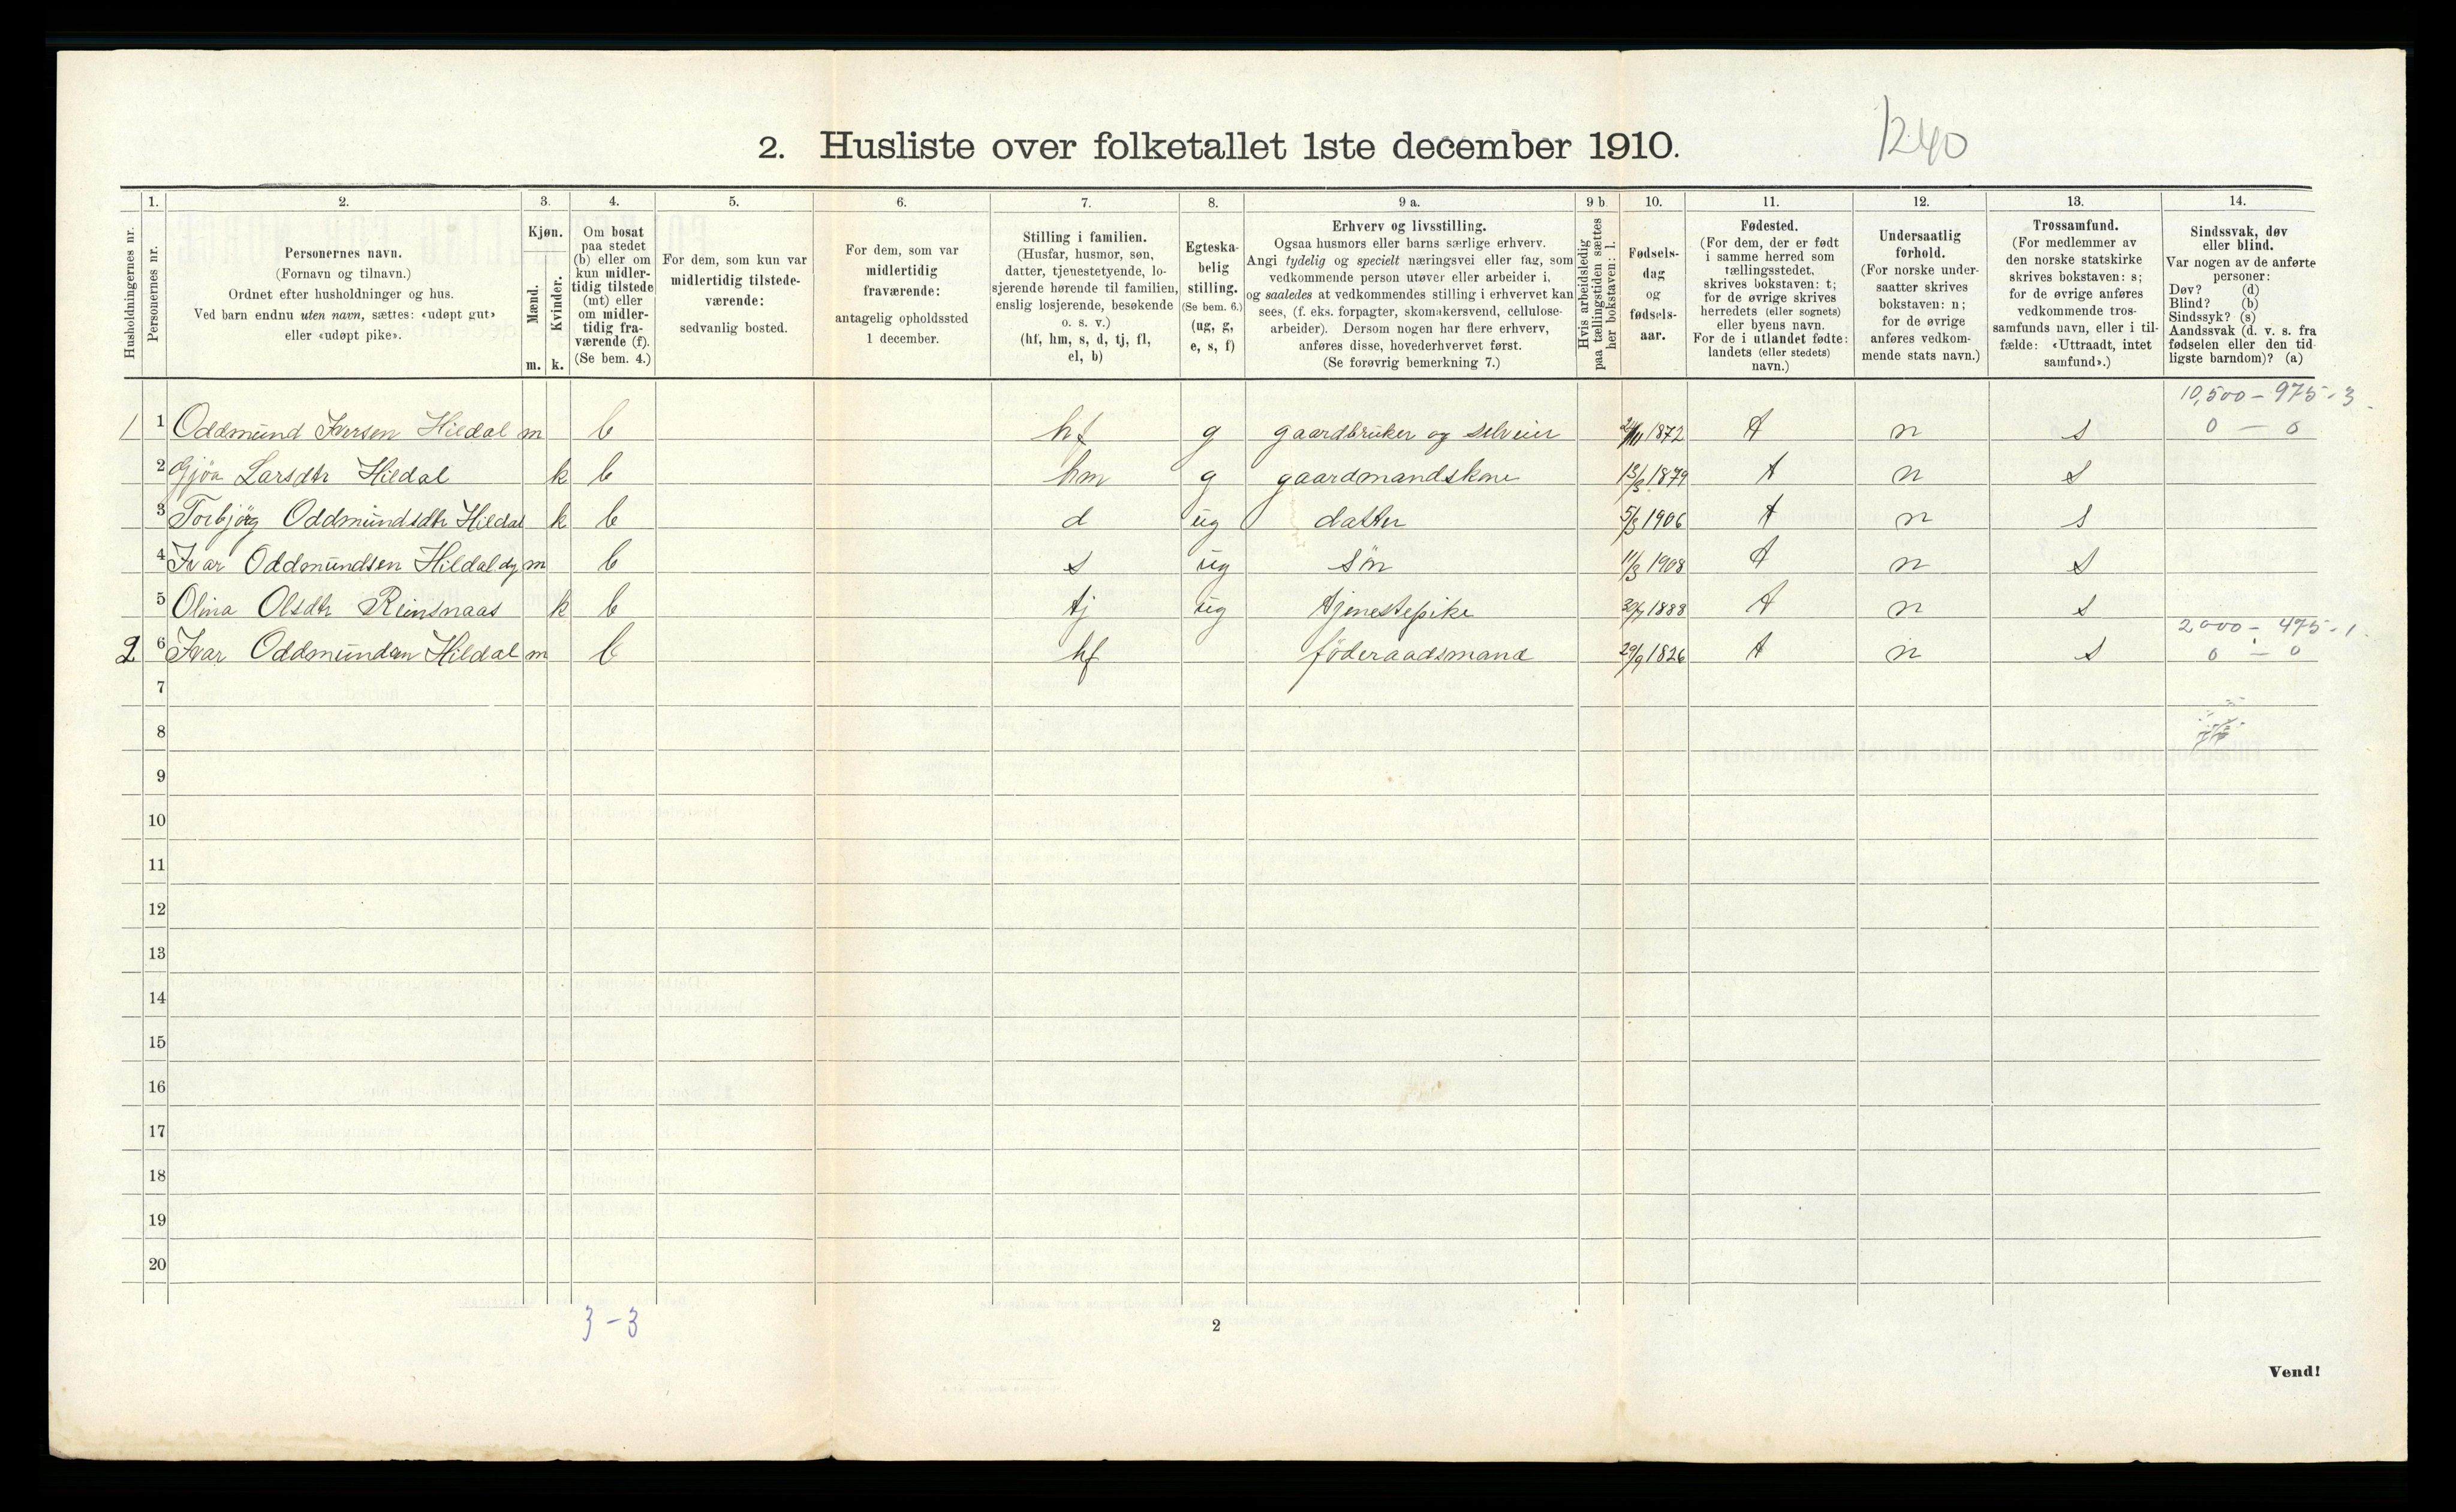 1240
2. Husliste over folketallet 1ste december 1910.
Husholdningernes nr.
1.
Personernes nr.
2.
Personernes navn.
(Fornavn og tilnavn.)
Ordnet efter husholdninger og hus.
Ved barn endnu uten navn, sættes: «udøpt gut»
eller «udøpt pike».
3.
Kjøn.
Mænd.
Kvinder.
m. k.
4.
Om bosat
paa stedet
(b) eller om
kun midler-
tidig tilstede
(mt) eller
om midler-
tidig fra-
værende (f).
(Se bem. 4.)
5.
For dem, som kun var
midlertidig tilstede-
værende:
sedvanlig bosted.
6.
For dem, som var
midlertidig
fraværende:
antagelig opholdssted
1 december.
7.
Stilling i familien.
(Husfar, husmor, søn,
datter, tjenestetyende, lo-
sjerende hørende til familien,
enslig losjerende, besøkende
o. s. v.)
(hf, hm, s, d, tj, fl,
el, b)
8.
Egteska-
belig
stilling.
(Se bem. 6.)
(ug, g,
e, s, f)
9 a.
Erhverv og livsstilling.
Ogsaa husmors eller barns særlige erhverv.
Angi tydelig og specielt næringsvei eller fag, som
vedkommende person utøver eller arbeider i,
og saaledes at vedkommendes stilling i erhvervet kan
sees, (f. eks. forpagter, skomakersvend, cellulose-
arbeider). Dersom nogen har flere erhverv,
anføres disse, hovederhvervet først.
(Se forøvrig bemerkning 7.)
9 b.
Hvis arbeidsledig
paa tællingstiden sættes
her bokstaven: l.
10.
Fødsels-
dag
og
fødsels-
aar.
11.
Fødested.
(For dem, der er født
i samme herred som
tællingsstedet,
skrives bokstaven: t;
for de øvrige skrives
herredets (eller sognets)
eller byens navn.
For de i utlandet fødte:
landets (eller stedets)
navn.)
12.
Undersaatlig
forhold.
(For norske under-
saatter skrives
bokstaven: n;
for de øvrige
anføres vedkom-
mende stats navn.)
13.
Trossamfund.
(For medlemmer av
den norske statskirke
skrives bokstaven: s;
for de øvrige anføres
vedkommende tros-
samfunds navn, eller i til-
fælde: «Uttraadt, intet
samfund».)
14.
Sindssvak, døv
eller blind.
Var nogen av de anførte
personer:
Døv? (d)
Blind? (b)
Sindssyk? (s)
Aandssvak (d. v. s. fra
fødselen eller den tid-
ligste barndom)? (a)
10,500 - 975 - 3
1 1 Oddmund Iversen Hildal m b hf g gaardbruker og selveier 1872 t n s 0 - 0
2 Gjøa Larsdtr Hildal k b hm g gaardmandskone 13/3 1879 t n s
3 Torbjørg Oddmundsdtr Hildal k b d ug datter 5/3 1906 t n s
4 Ivar Oddmundsen Hildal dy m b s ug søn 11/3 1908 t n s
5 Olina Olsdtr Reinsnaas k b tj ug tjenestepike 30/7 1888 t n s
2000 - 475 - 1
2 6 Ivar Oddmundsen Hildal m b hf føderaadsmand 29/9 1826 t n s 0 - 0
7
8
9
10
11
12
13
14
15
16
17
18
19
20
3 - 3
2
Vend!